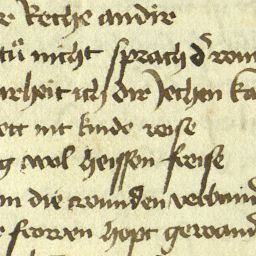 r Reche an dir
tů nicht sprach dˢ rom
arheit ich dir Jechen ka
ett mt kinde weise
g wol heissen freise
m die wunden verbund
e frowen hopt gewand